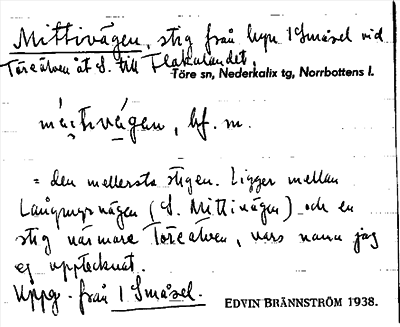 Mittivägen, stig från byn 1 Småsel vid
Töreälven åt S. till Flakalandet.
Töre sn, Nederkalix tg, Norrbottens l.
bf. m.
= den mellersta stigen. Ligger mellan
Långmyrvägen (S. Mittivägen) och en
stig närmare Töreälven, vars namn jag
ej upptecknat.
Uppg. från 1 Småsel.
EDVIN BRÄNNSTRÖM 1938.